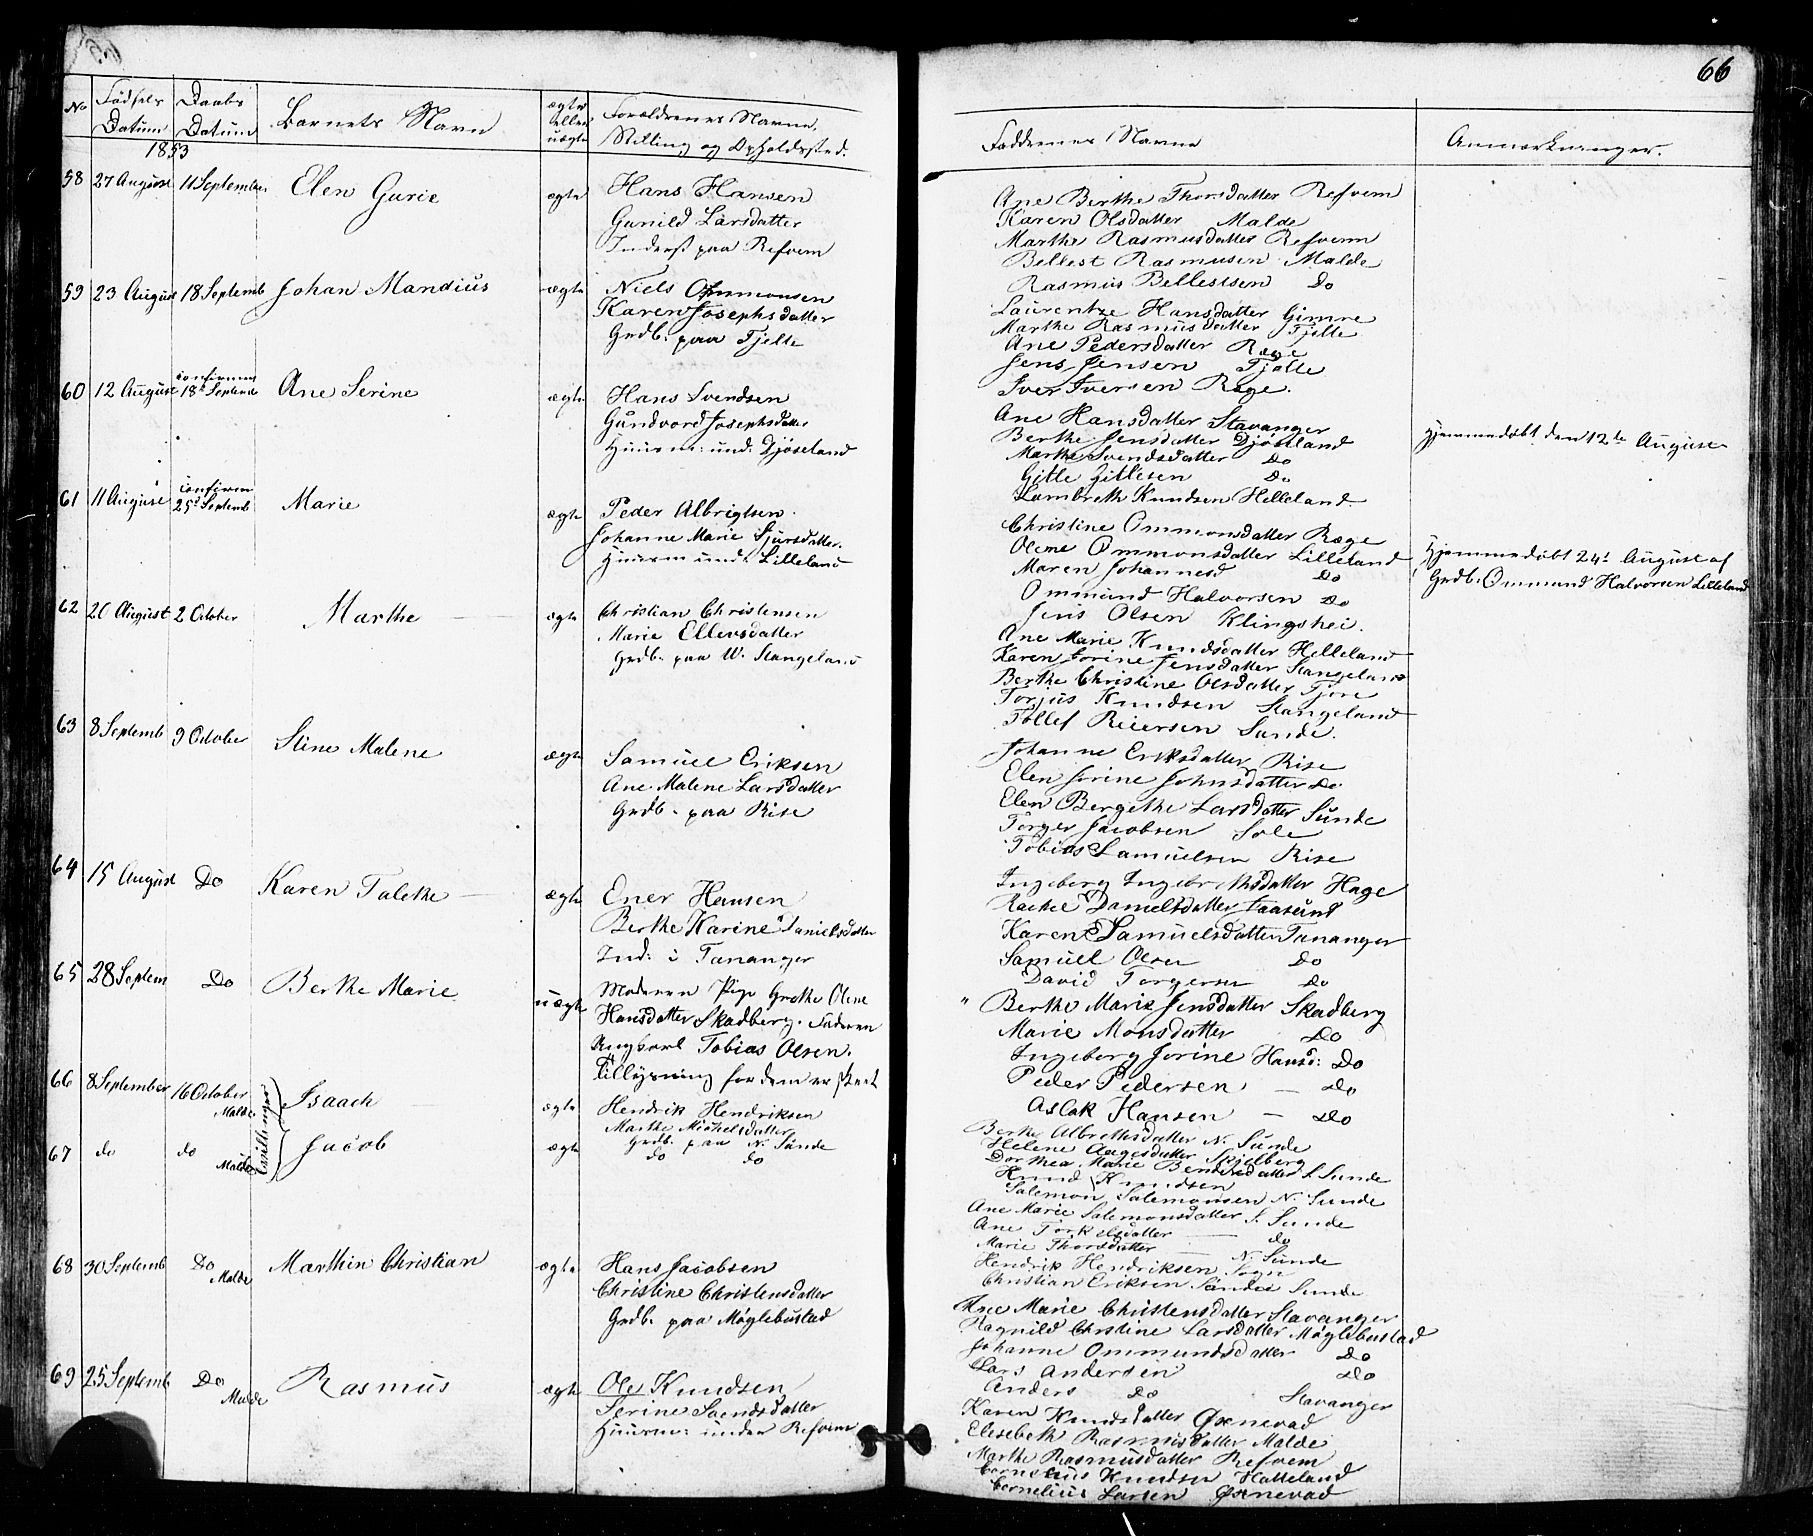 66
No Fødsels Datum Daabs Datum Barnets Navn ægte eller uægte Forældrenes Navne, Stilling og Opholdssted. Faddernes Navne Anmærkninger.
1853
58 27 August 11 September Elen Gurie ægte Hans Hansen
Gunild Larsdatter
Inderst paa Refvem
Ane Berthe Thorsdatter Refvem
Karen Olsdatter Malde
Marthe Rasmusdatter Refvem
Bellest Rasmusen Malde
Rasmus Bellestsen Do
59 23 August 18 Septemb Johan Mandius ægte Niels Ommonsen
Karen Josephsdatter
Grdb. paa Tjelte
Laurentze Hansdatter Gimre
Marthe Rasmusdatter Tjelte
Ane Pedersdatter Ræge
Jens Jensen Tjelte
Iver Iversen Ræge.
60 12 August confirm 18 Septemb Ane Serine ægte Hans Svendsen
Gundvord Josephsdatter
Huusm: und: Djøseland
Ane Hansdatter Stavanger
Berthe Jensdatter Djøseland
Marthe Svendsdatter Do
Gitle Gitlesen Do
Lambreth Knudsen Helleland.
Hjemmedøbt den 12te August
61 11 August confirm 25 Septemb Marie ægte Peder Albrigtsen
Johanne Marie Sjursdatter.
Huusm und. Lilleland
Christine Ommonsdatter Ræge
Olene Ommonsdatter Lilleland
Maren Johannesd Do
Ommund Halvorsen Do
Jens Olsen Klingshei.
Hjemmedøbt 24d August af
Grdb. Ommund Halvorsen Lilleland
62 20 August 2 October Marthe ægte Christian Christensen
Marie Ellevsdatter
Grdb. paa W. Stangeland
Ane Marie Knudsdatter Helleland
Karen Jorine Jensdatter Stangeland
Berthe Christine Olsdatter Tjore
Torjus Knudsen Stangeland
Tollef Reiersen Sunde.
63 8 Septemb 9 October Stine Malene ægte Samuel Eriksen
Ane Malene Larsdatter
Grdb. paa Rise
Johanne Eriksdatter Rise
Elen Jorine Johnsdatter Do
Elen Bergethe Larsdatter Sunde
Torger Jacobsen Sole
Tobias Samuelsen Rise
64 15 August Do Karen Talethe ægte Ener Hansen
Berthe Karine Danielsdatter
Ind: i Tananger
Ingeborg Ingebrethsdatter Hage
Rachel Danielsdatter
Karen Samuelsdatter Tananger
Samuel Olsen Do
David Torgersen Do
65 28 Septem Do Berthe Marie uægte Moderen Pige Grethe Olene
Hansdatter Skadberg. Faderen
Ungkarl Tobias Olsen.
Tillysning for dem er skeet
Berthe Marie Jensdatter Skadberg
Marie Monsdatter Do
Ingeborg Jorine Hansd: Do
Peder Pedersen Do
Aslak Hansen Do
66 8 September 16 October Malde Tvillinger Isaach ægte Hendrik Hendriksen
Marthe Michelsdatter
Grdb. paa N. Sunde
Berthe Albrethsdatter N. Sunde
Helene Aagesdatter Skjelberg
Dorthea Marie Berntsdatter S. Sunde
Knud Knudsen
Salemon Salemonsen N. Sunde
67 do do Malde Jacob ægte do do
Ane Marie Salemonsdatter S. Sunde
Ane Torkelsdatter do
Marie Thorsdatter N. Sunde
Hendrik Hendriksen
Christian Eriksen Sunde
68 30 Septemb Do Malde Marthin Christian ægte Hans Jacobsen
Christine Christensdatter
Grdb. paa Møglebustad
Ane Marie Christensdatter Stavanger
Ragnild Christine Larsdatter Møglebustad
Johanne Ommundsdatter Do
Lars Andersen Do
Anders Do Stavanger
69 25 Septemb Do Malde Rasmus ægte Ole Knudsen
Serine Svendsdatter
Huusm: under Refvem
Karen Knudsdatter Øxnevad
Elisebeth Rasmusdatter Malde
Marthe Rasmusdatter Refvem
Cornelius Knudsen Hatteland
Cornelius Larsen Øxnevad